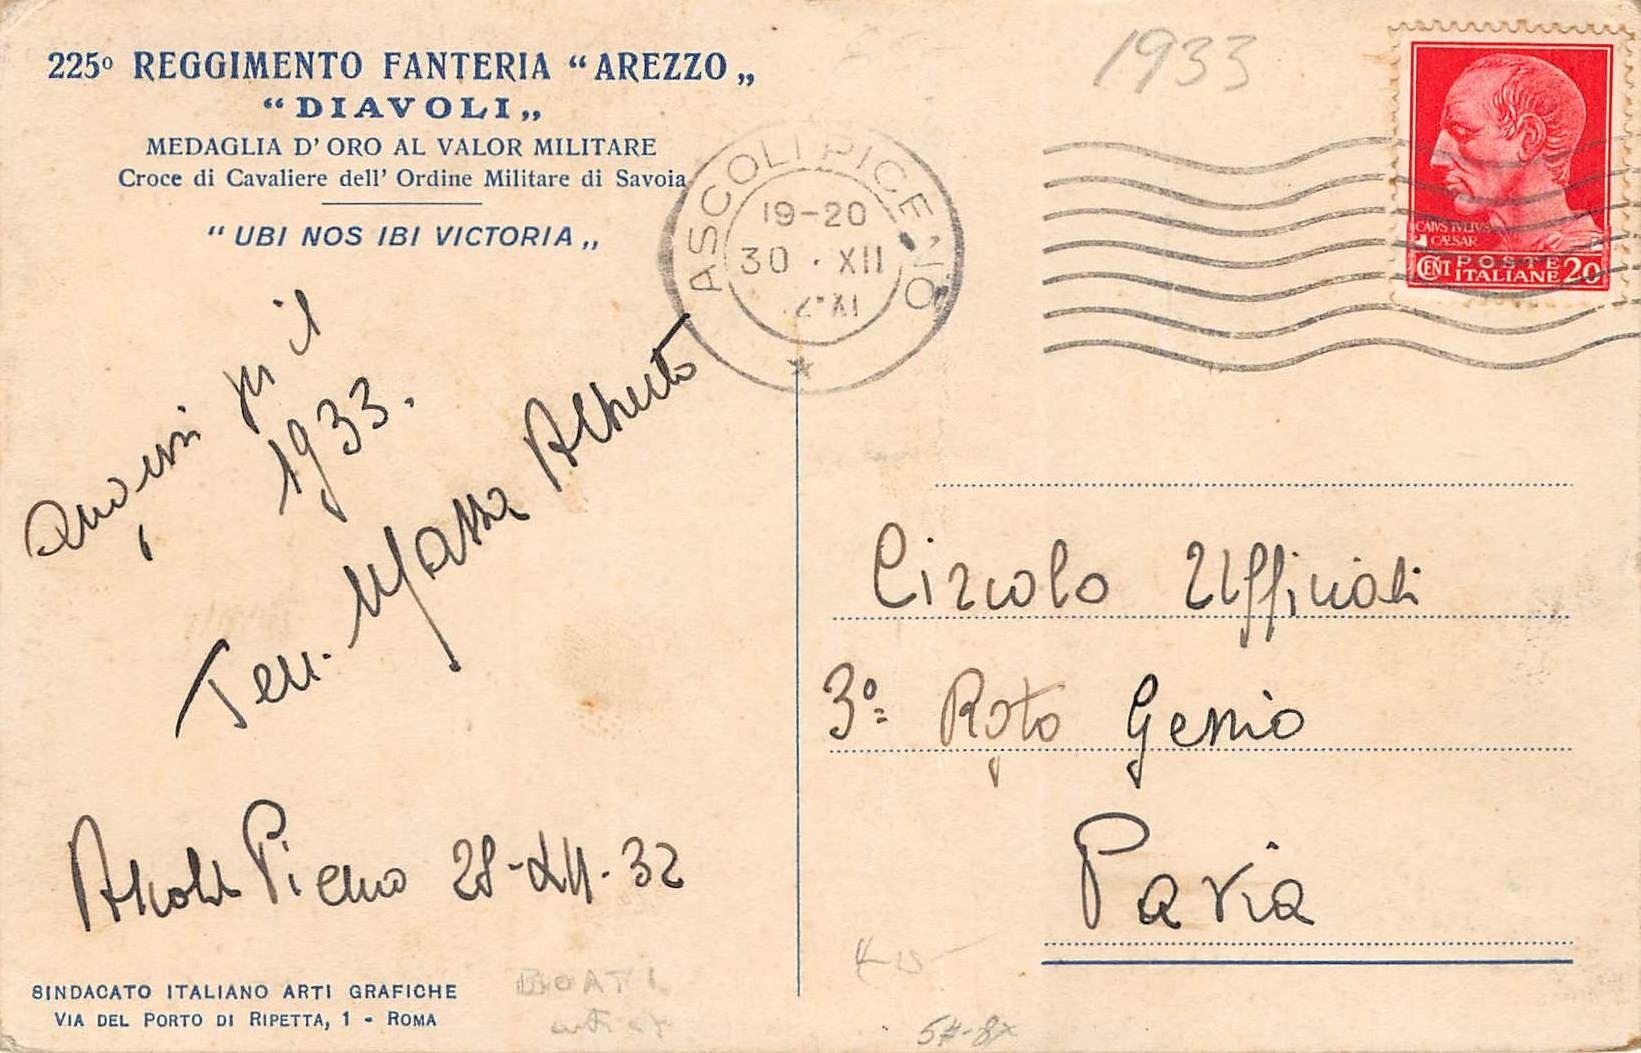 225º REGGIMENTO FANTERIA “AREZZO„
“DIAVOLI„
MEDAGLIA D' ORO AL VALOR MILITARE
Croce di Cavaliere dell' Ordine Militare di Savoia
“UBI NOS IBI VICTORIA„
1933
ASCOLI PICENO
19-20
30 · XII
CAIVS IVLIVS
CÆSAR
CENT POSTE
ITALIANE 20
Auguri pel
1933.
Ten. Massa Alberto
Ascoli Piceno 28-XII-32
Circolo Ufficiali
3º Rgto Genio
Pavia
SINDACATO ITALIANO ARTI GRAFICHE
VIA DEL PORTO DI RIPETTA, 1 - ROMA